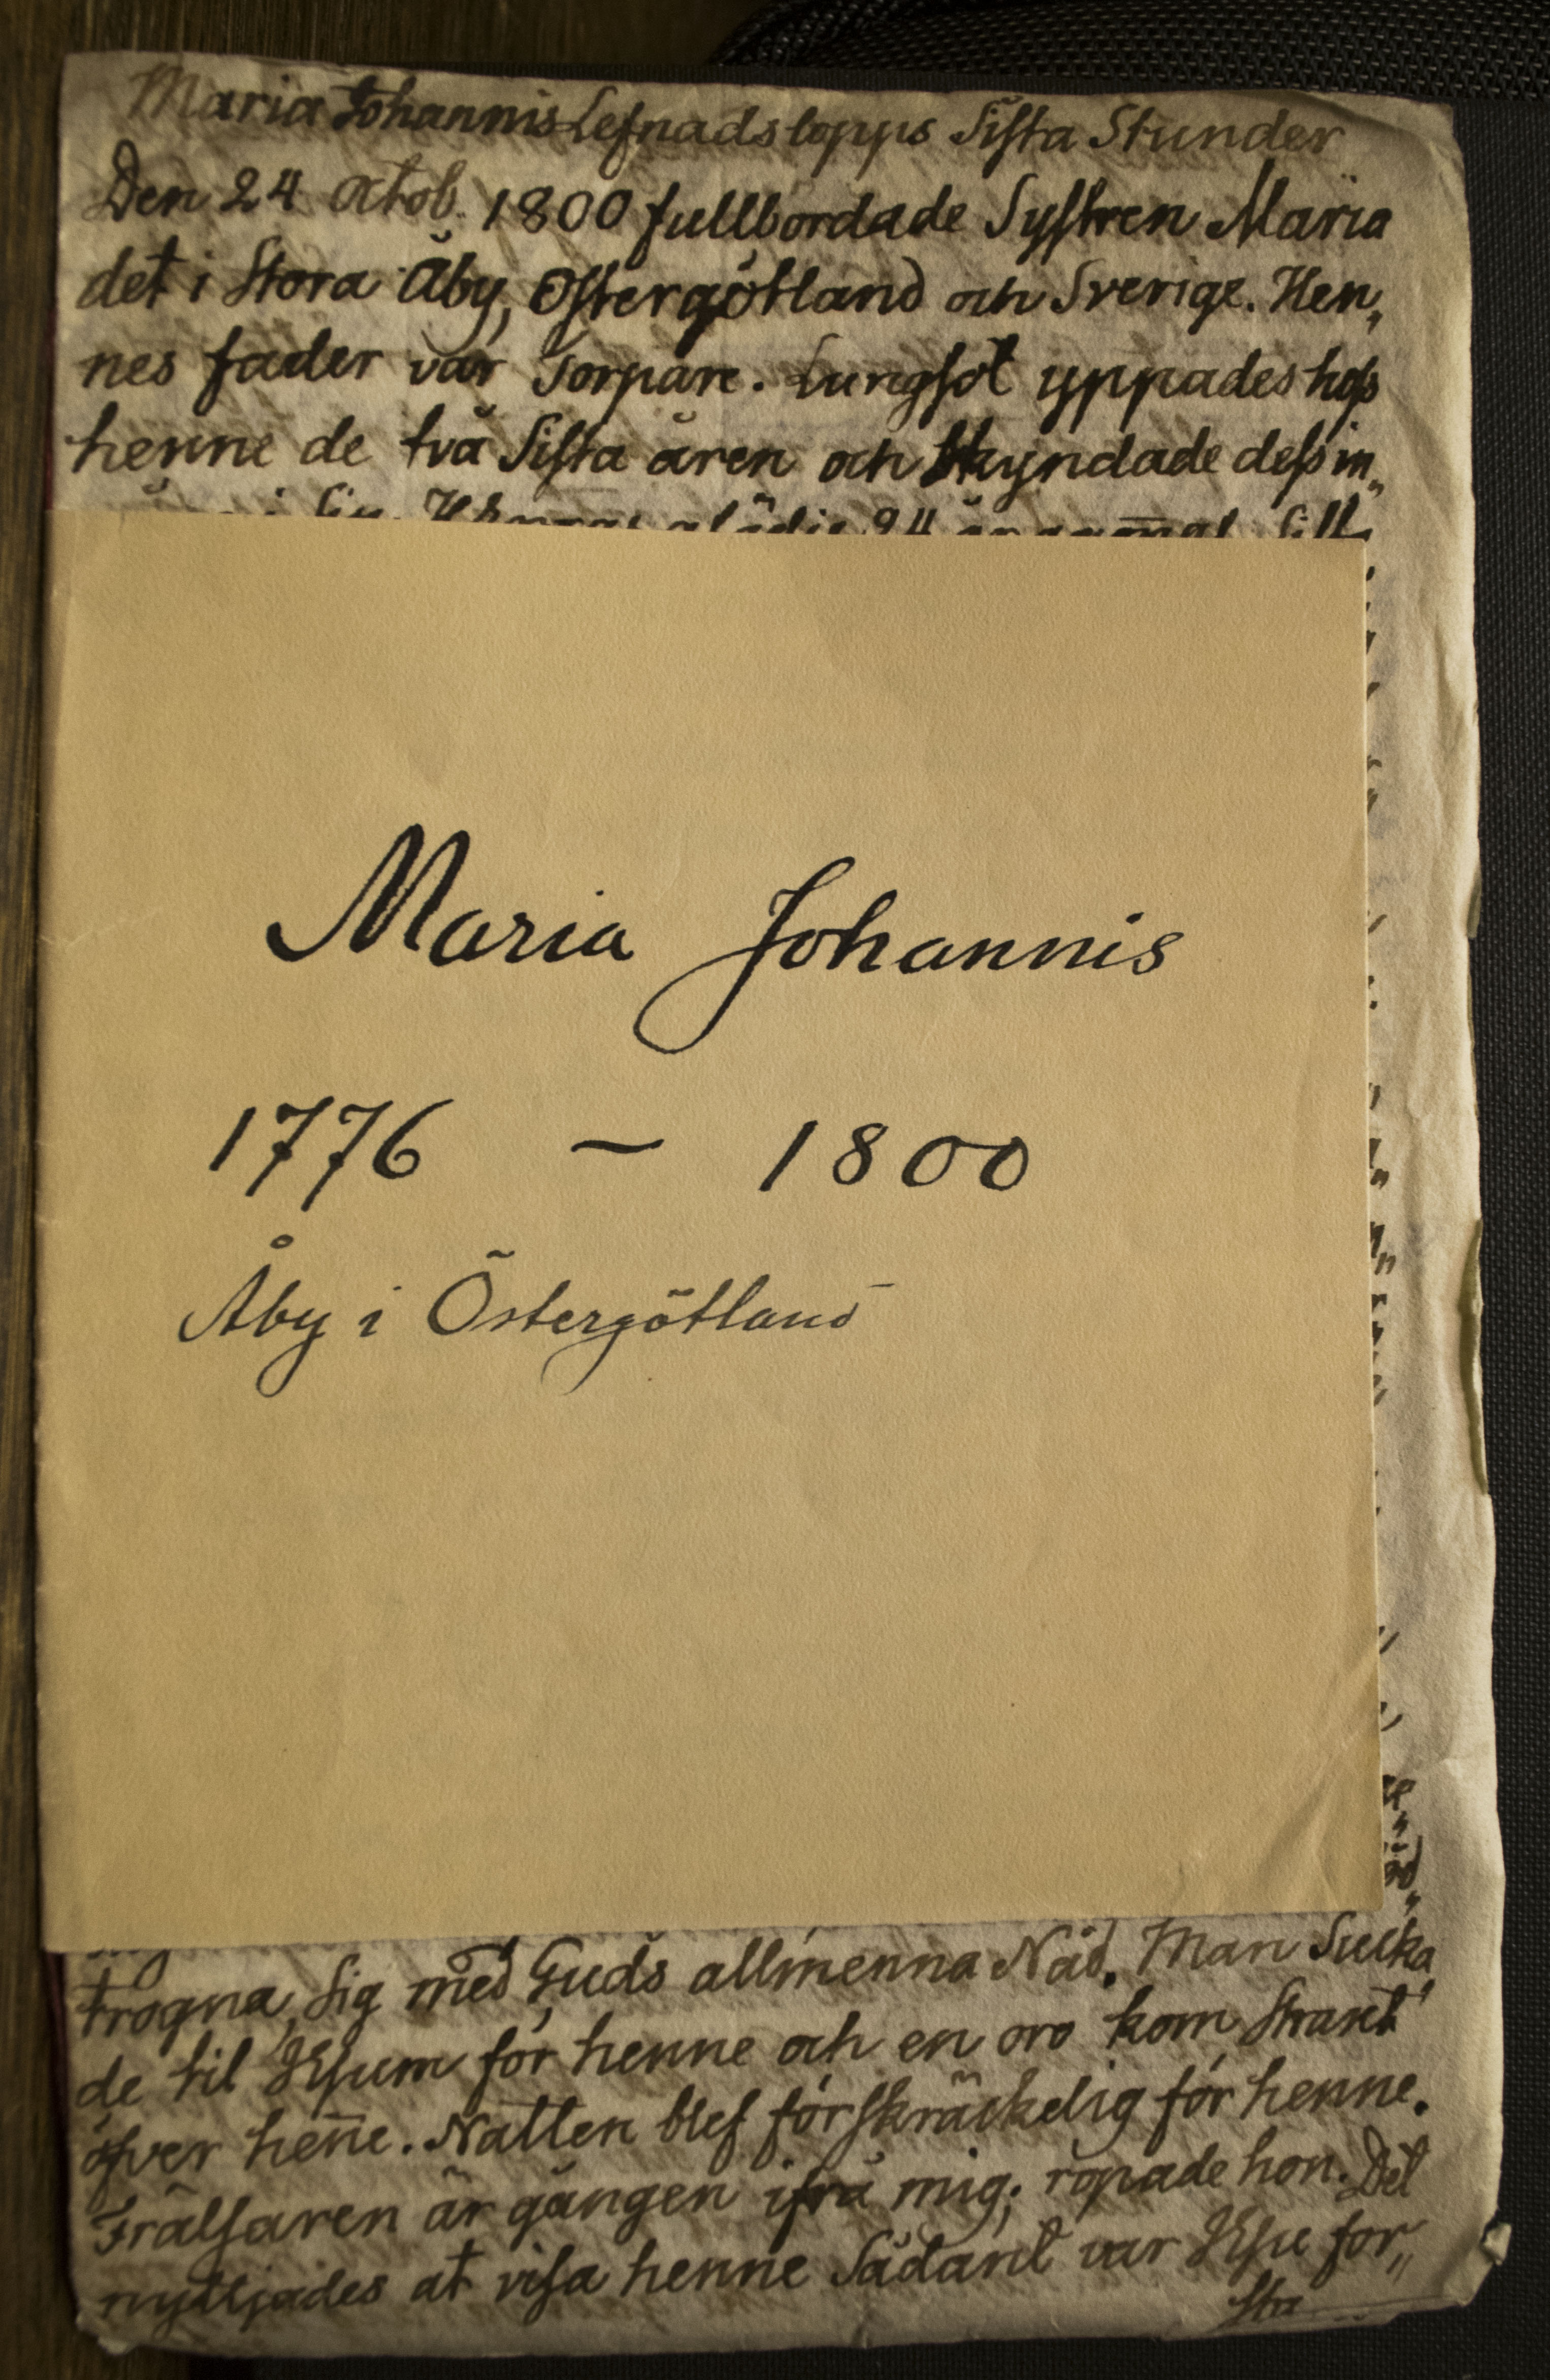 Maria Johannis Lefnadslopps Sista Stunder
Den 24 Octob. 1800 fullbordade Systren Maria
det i Stora Åby, Östergötland och Sverige. Hen„
nes fader var Torpare. Lungsot yppades hos
henne de två Sista åren och skyndade dess in„
i sin Herras glädje 24 år gam̅al. Sitt
Maria Johannis
1776 – 1800
Åby i Östergötland
trogna sig med Guds allmenna Nåd. Man Sucka„
de til JEsum för henne och en oro kom Straxt
öfver hen̅e. Natten blef förskräckelig för henne.
Frälsaren är gången ifrå mig; ropade hon. Det
nyttjades at visa henne Sådant var JEsu för„
sta